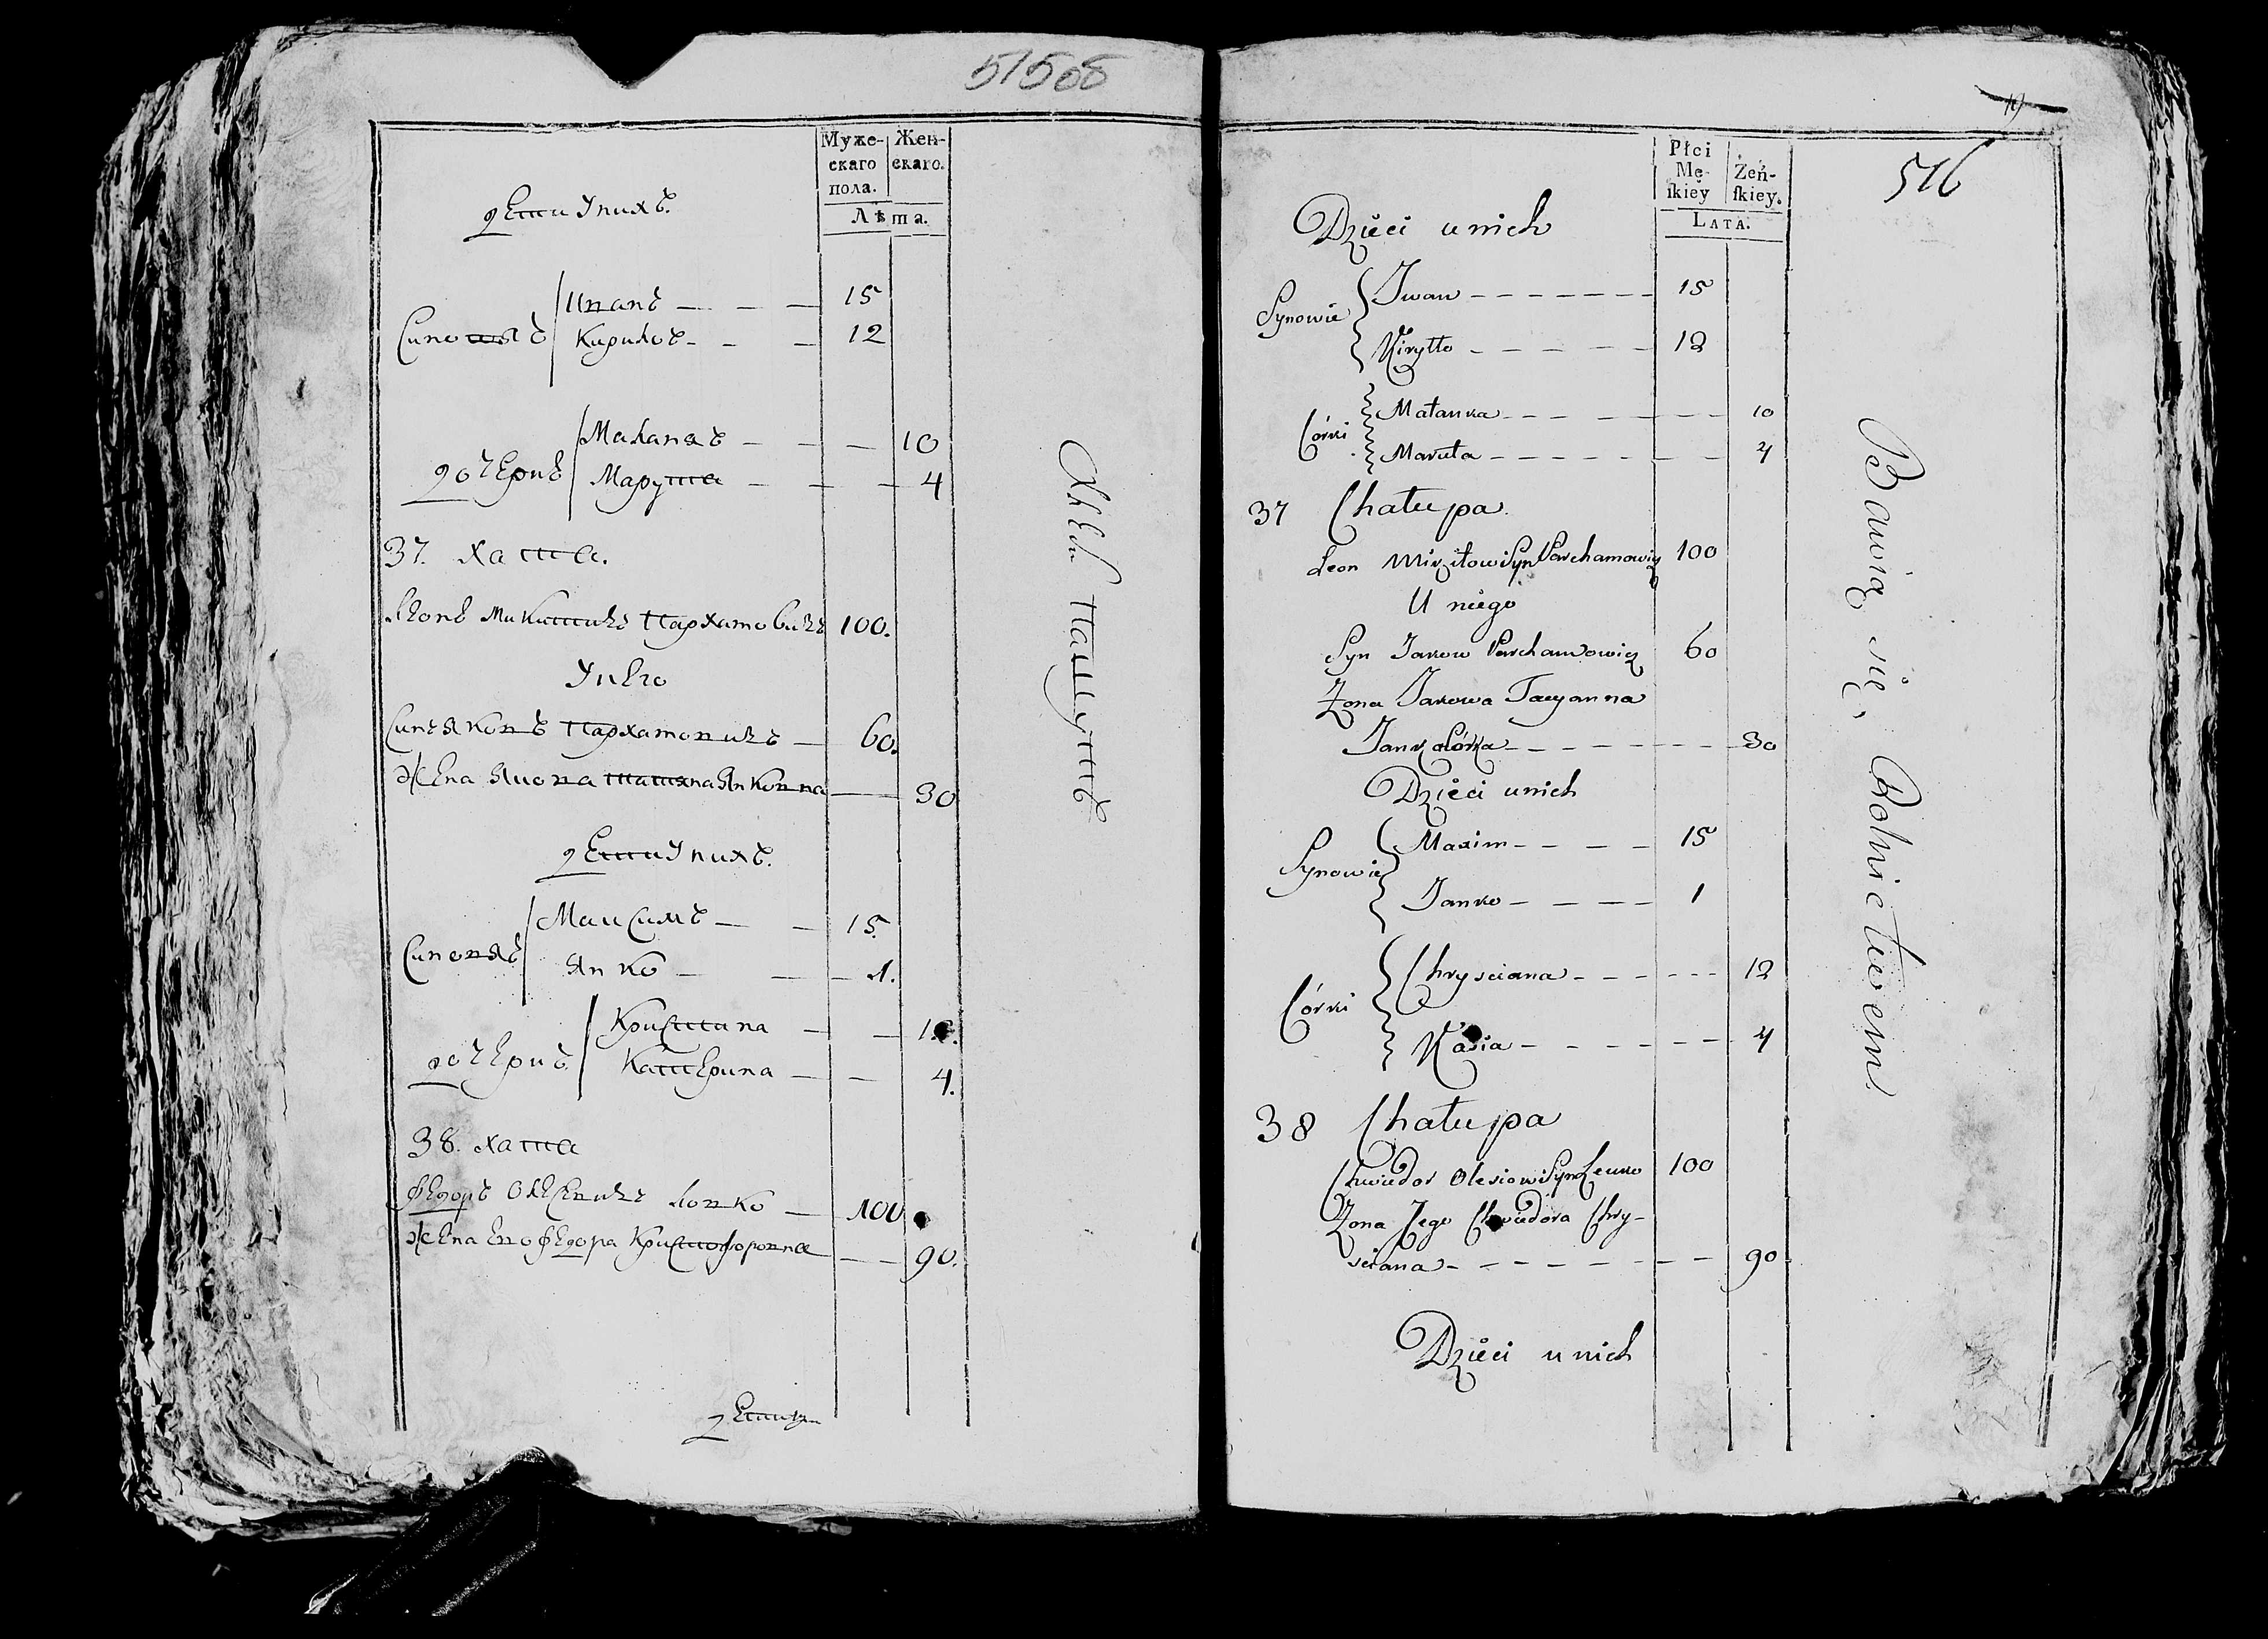 515об
Муже-
скаго
пола.
Жен-
скаго.
Лѣта.
дети У нихъ.
Сыновъя
Иванъ — — — 15
Кирилъ — — — 12
дочери
Маланя — — — 10
Марута — — — 4
37. хата.
Леонъ Микитичъ Пархамовичъ 100.
У него
Синъ Яковъ Пархамовичъ — 60.
Жена Якова Татяна Янковна — 30
дети У нихъ.
Максимъ — — 15.
Янко — — 1.
Кристина — —
Катерина — — 4.
38. хата
Федоръ Олесевичъ Левко — 100
Жена Его Федора — — 90.
дети у
Хлеб пашут
516
Płci
Mę-
ſkiey
Żeń-
ſkiey.
Lata.
Dzieci u nich
Synowie
Iwan — — — 15
Kiryłło — — — 12
Córki
Małanka — — — 10
Maruta — — — 4
37 Chałupa
Leon Mikitow Syn Parchamowicz 100
U niego
Syn Jakow Parchamowicz 60
Żona Jakowa Tacyanna
Jank Córka — — — 30
Dzieci u nich
Synowie
Maxim — — — 15
Janko — — — 1
Córki
Chrysciana — — — 12
Kasia — — — 4
38 Chałupa
Chwiedor Olesiow Syn Lewko 100
Żona Jego Chwiedora Chry-
sciana — — — 90
Dzieci u nich
Bawią się, Rolnictwem.